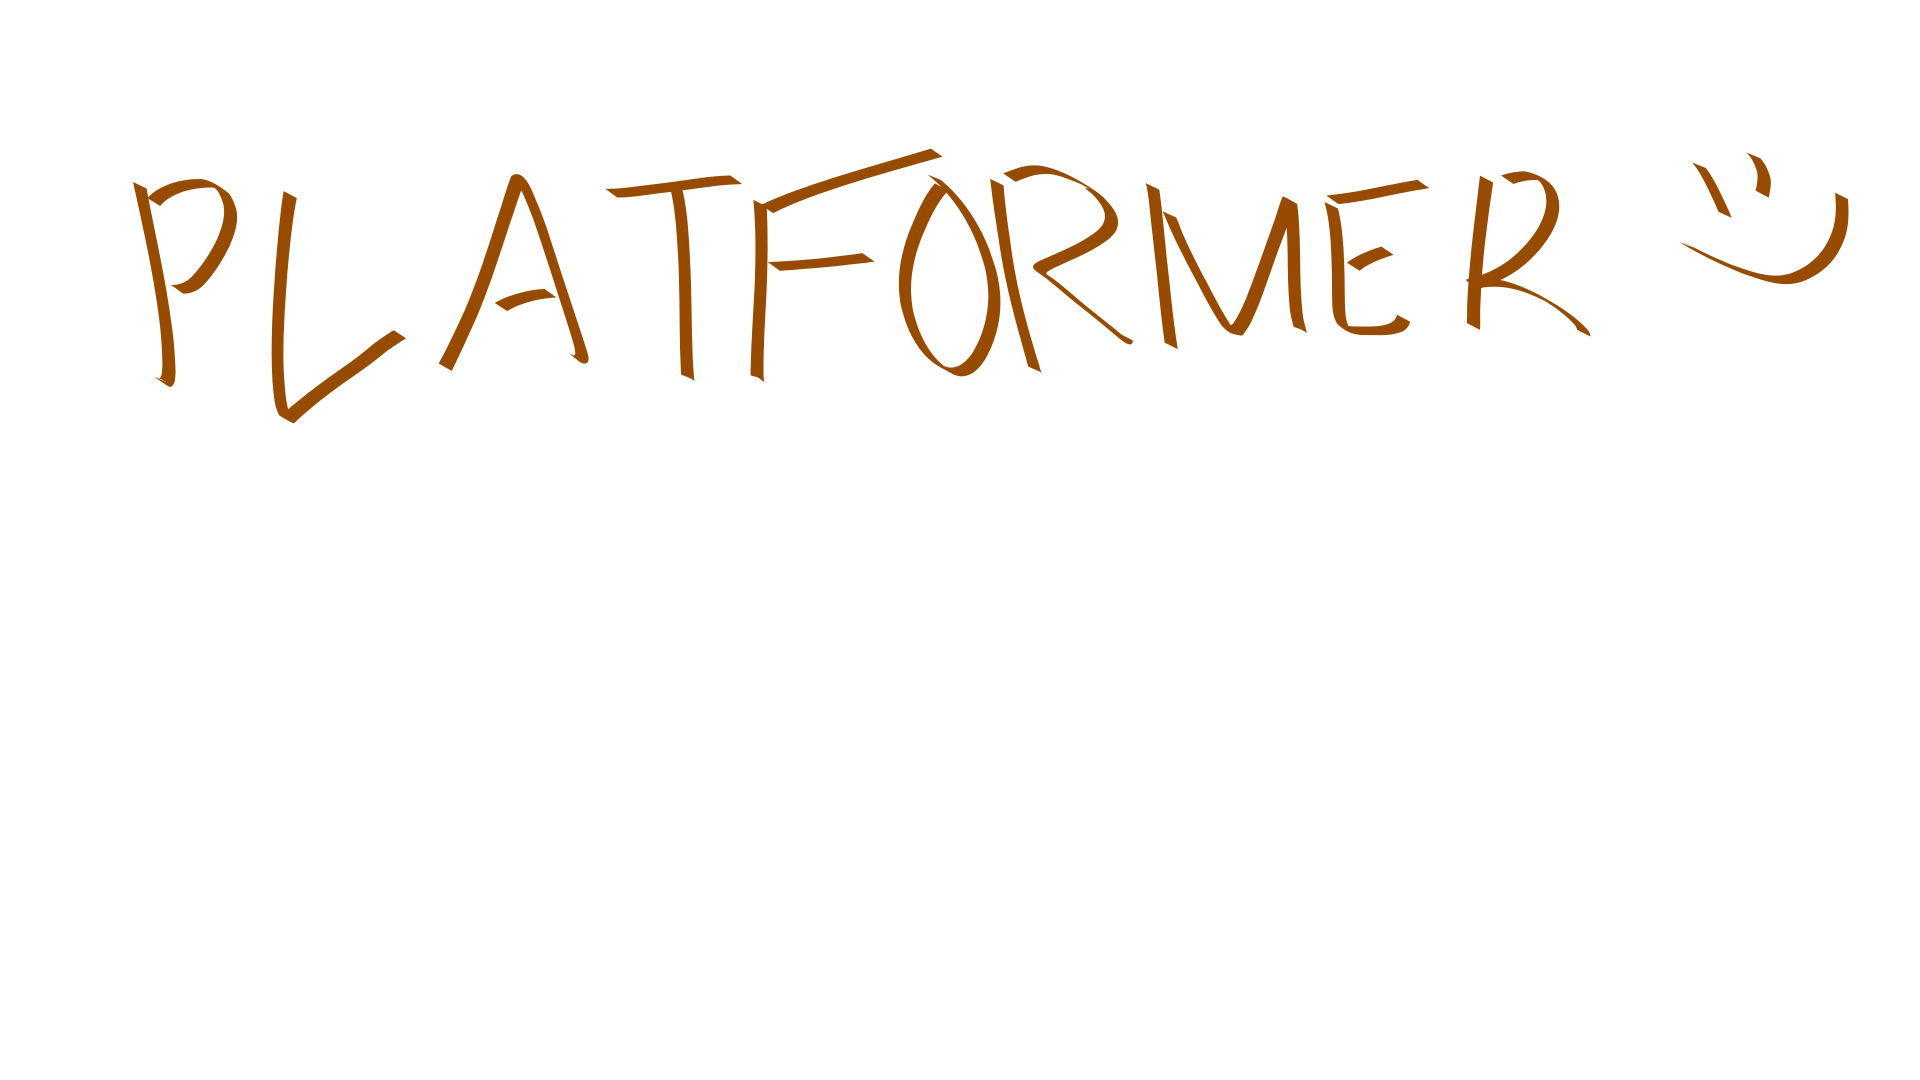 PLATFORMER :)